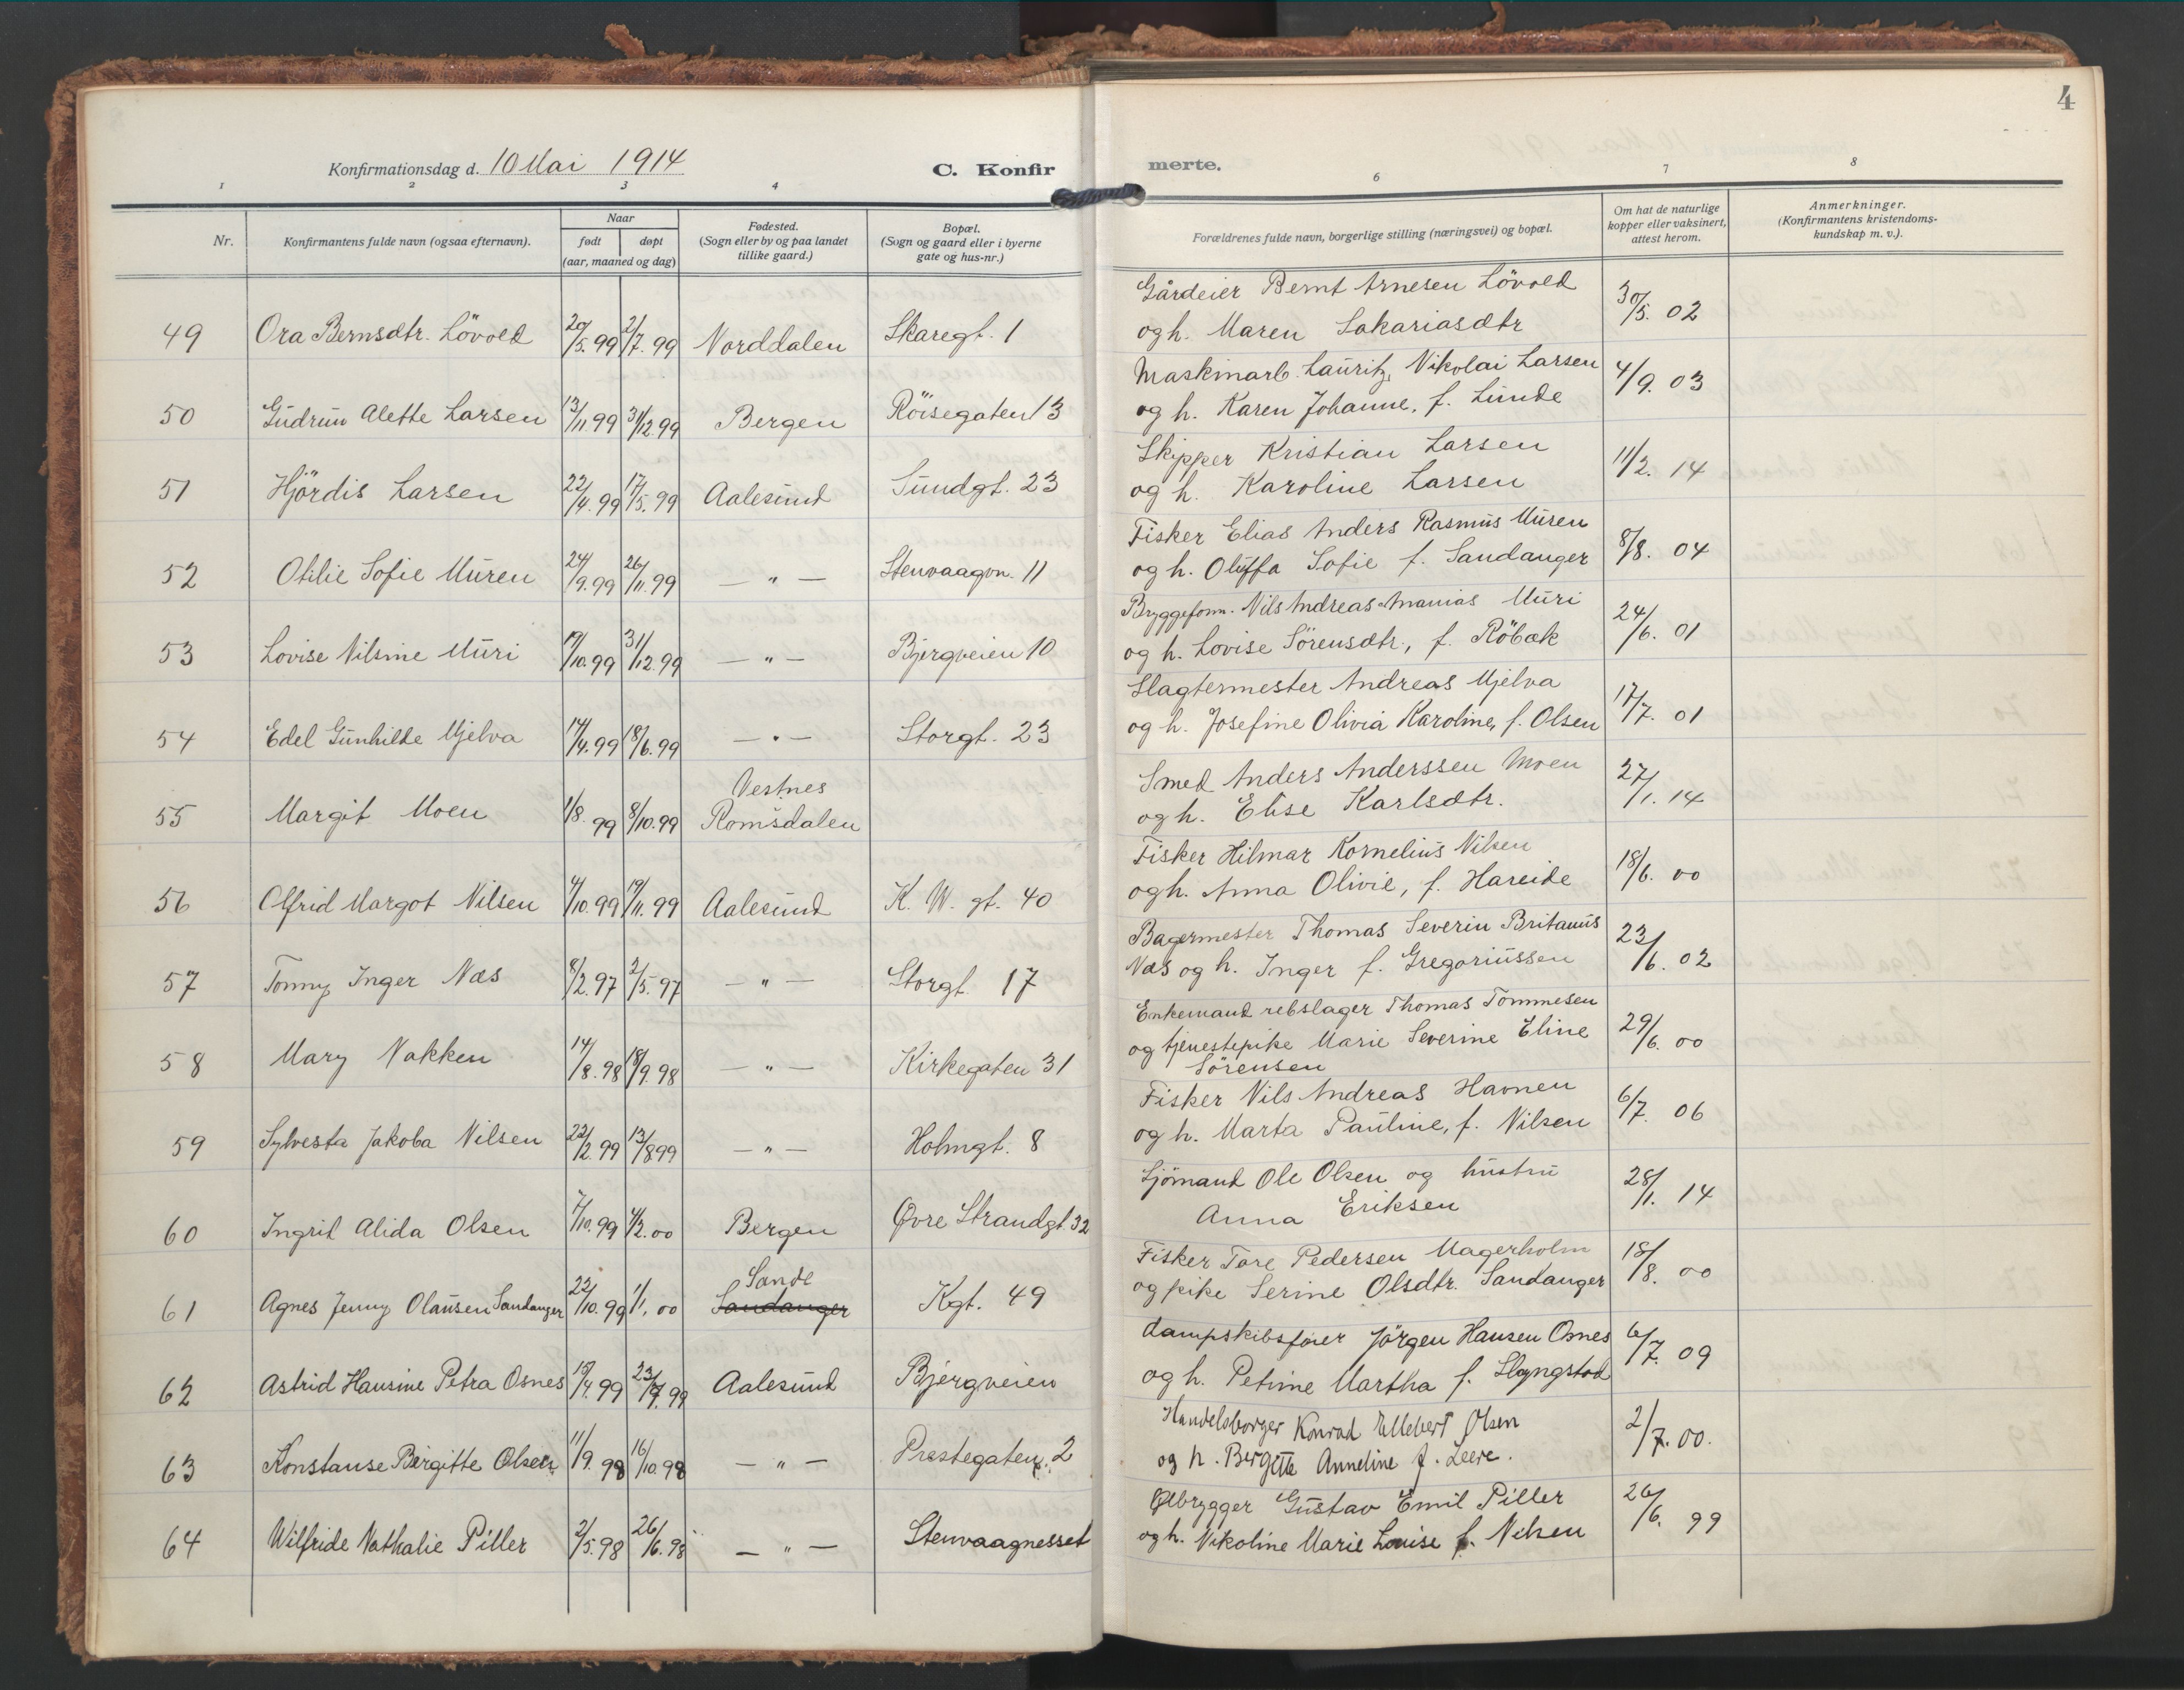 4
Konfirmationsdag d. 10 Mai 1914
C. Konfirmerte.
1 2 3 4 6 7 8
Nr.
Konfirmantens fulde navn (ogsaa efternavn).
Naar
født døpt
(aar, maaned og dag)
Fødested.
(Sogn eller by og paa landet
tillike gaard.)
Bopæl.
(Sogn og gaard eller i byerne
gate og hus-nr.)
Forældrenes fulde navn, borgerlige stilling (næringsvei) og bopæl.
Om hat de naturlige
kopper eller vaksinert,
attest herom.
Anmerkninger.
(Konfirmantens kristendoms-
kundskap m. v.).
49 Ora Bernsdtr. Lövold 20/5. 99 2/7. 99 Norddalen Skaregt. 1
Gårdeier Bernt Arnesen Lövold
og h. Maren Sakariasdtr 30/5. 02
50 Gudrun Alette Larsen 13/11 99 31/12 99 Bergen Röisegaten 13
Maskinarb. Lauritz Nikolai Larsen
og h. Karen Johanne, f. Lunde 4/9. 03
51 Hjördis Larsen 22/4. 99 17/5. 99 Aalesund Sundgt. 23
Skipper Kristian Larsen
og h. Karoline Larsen 11/2. 14
52 Otilie Sofie Muren 24/9. 99 26/11. 99 — " — Stenvaagvn. 11
Fisker Elias Anders Rasmus Muren
og h. Oluffa Sofie f. Sandanger 8/8. 04
53 Lovise Nilsine Muri 19/10. 99 31/12. 99 — " — Bjergveien 10
Bryggeform. Nils Andreas Ananias Muri
og h. Lovise Sörensdtr., f. Röbæk 24/6. 01
54 Edel Gunhilde Mjelva 14/4. 99 18/6. 99 — " — Storgt. 23
Slagtermester Andreas Mjelva
og h. Josefine Olivia Karoline, f. Olsen 17/7. 01
55 Margit Moen 1/8. 99 8/10. 99 Vestnes
Romsdalen
Smed Anders Anderssen Moen
og h. Elise Karlsdtr. 27/1. 14
56 Olfrid Margot Nilsen 4/10. 99 19/11. 99 Aalesund K. W. gt. 40
Fisker Hilmar Kornelius Nilsen
og h. Anna Olivie, f. Hareide 18/6. 00
57 Tonny Inger Næs 8/2. 97 2/5. 97 — " — Storgt. 17
Bagermester Thomas Severin Britanus
Næs og h. Inger f. Gregoriussen 23/6. 02
58 Mary Nakken 14/8. 98 18/9. 98 — " — Kirkegaten 31
Enkemand rebslager Thomas Tommesen
og tjenestepike Marie Severine Eline
Sörensen 29/6. 00
59 Sylvesta Jakoba Nilsen 22/2. 99 13/8 99 — " — Holmgt. 8
Fisker Nils Andreas Havnen
og h. Marta Pauline, f. Nilsen 6/7. 06
60 Ingrid Alida Olsen 7/10. 99 4/2. 00 Bergen Øvre Strandgt. 32
Sjömand Ole Olsen og hustru
Anna Eriksen 28/1. 14
61 Agnes Jenny Olausen Sandanger 22/10. 99 1/1. 00 Sande
Sandanger Kgt. 49
Fisker Tore Pedersen Magerholm
og pike Serine Olsdtr. Sandanger 18/8. 00
62 Astrid Hansine Petra Osnes 15/4. 99 23/7. 99 Aalesund Bjergveien
Dampskibsfører Jörgen Hansen Osnes
og h. Petrine Martha f. Slyngstad 6/7. 09
63 Konstanse Birgitte Olsen 11/9. 98 16/10. 98 — " — Præstegaten 2
Handelsborger Konrad Ellebert Olsen
og h. Bergitte Anneline f. Leere. 2/7. 00.
64 Wilfride Nathalie Piller 2/5. 98 26/6. 98 — " — Stenvaagnesset
Ølbrygger Gustav Emil Piller
og h. Nikoline Marie Louise f. Nilsen 26/6. 99